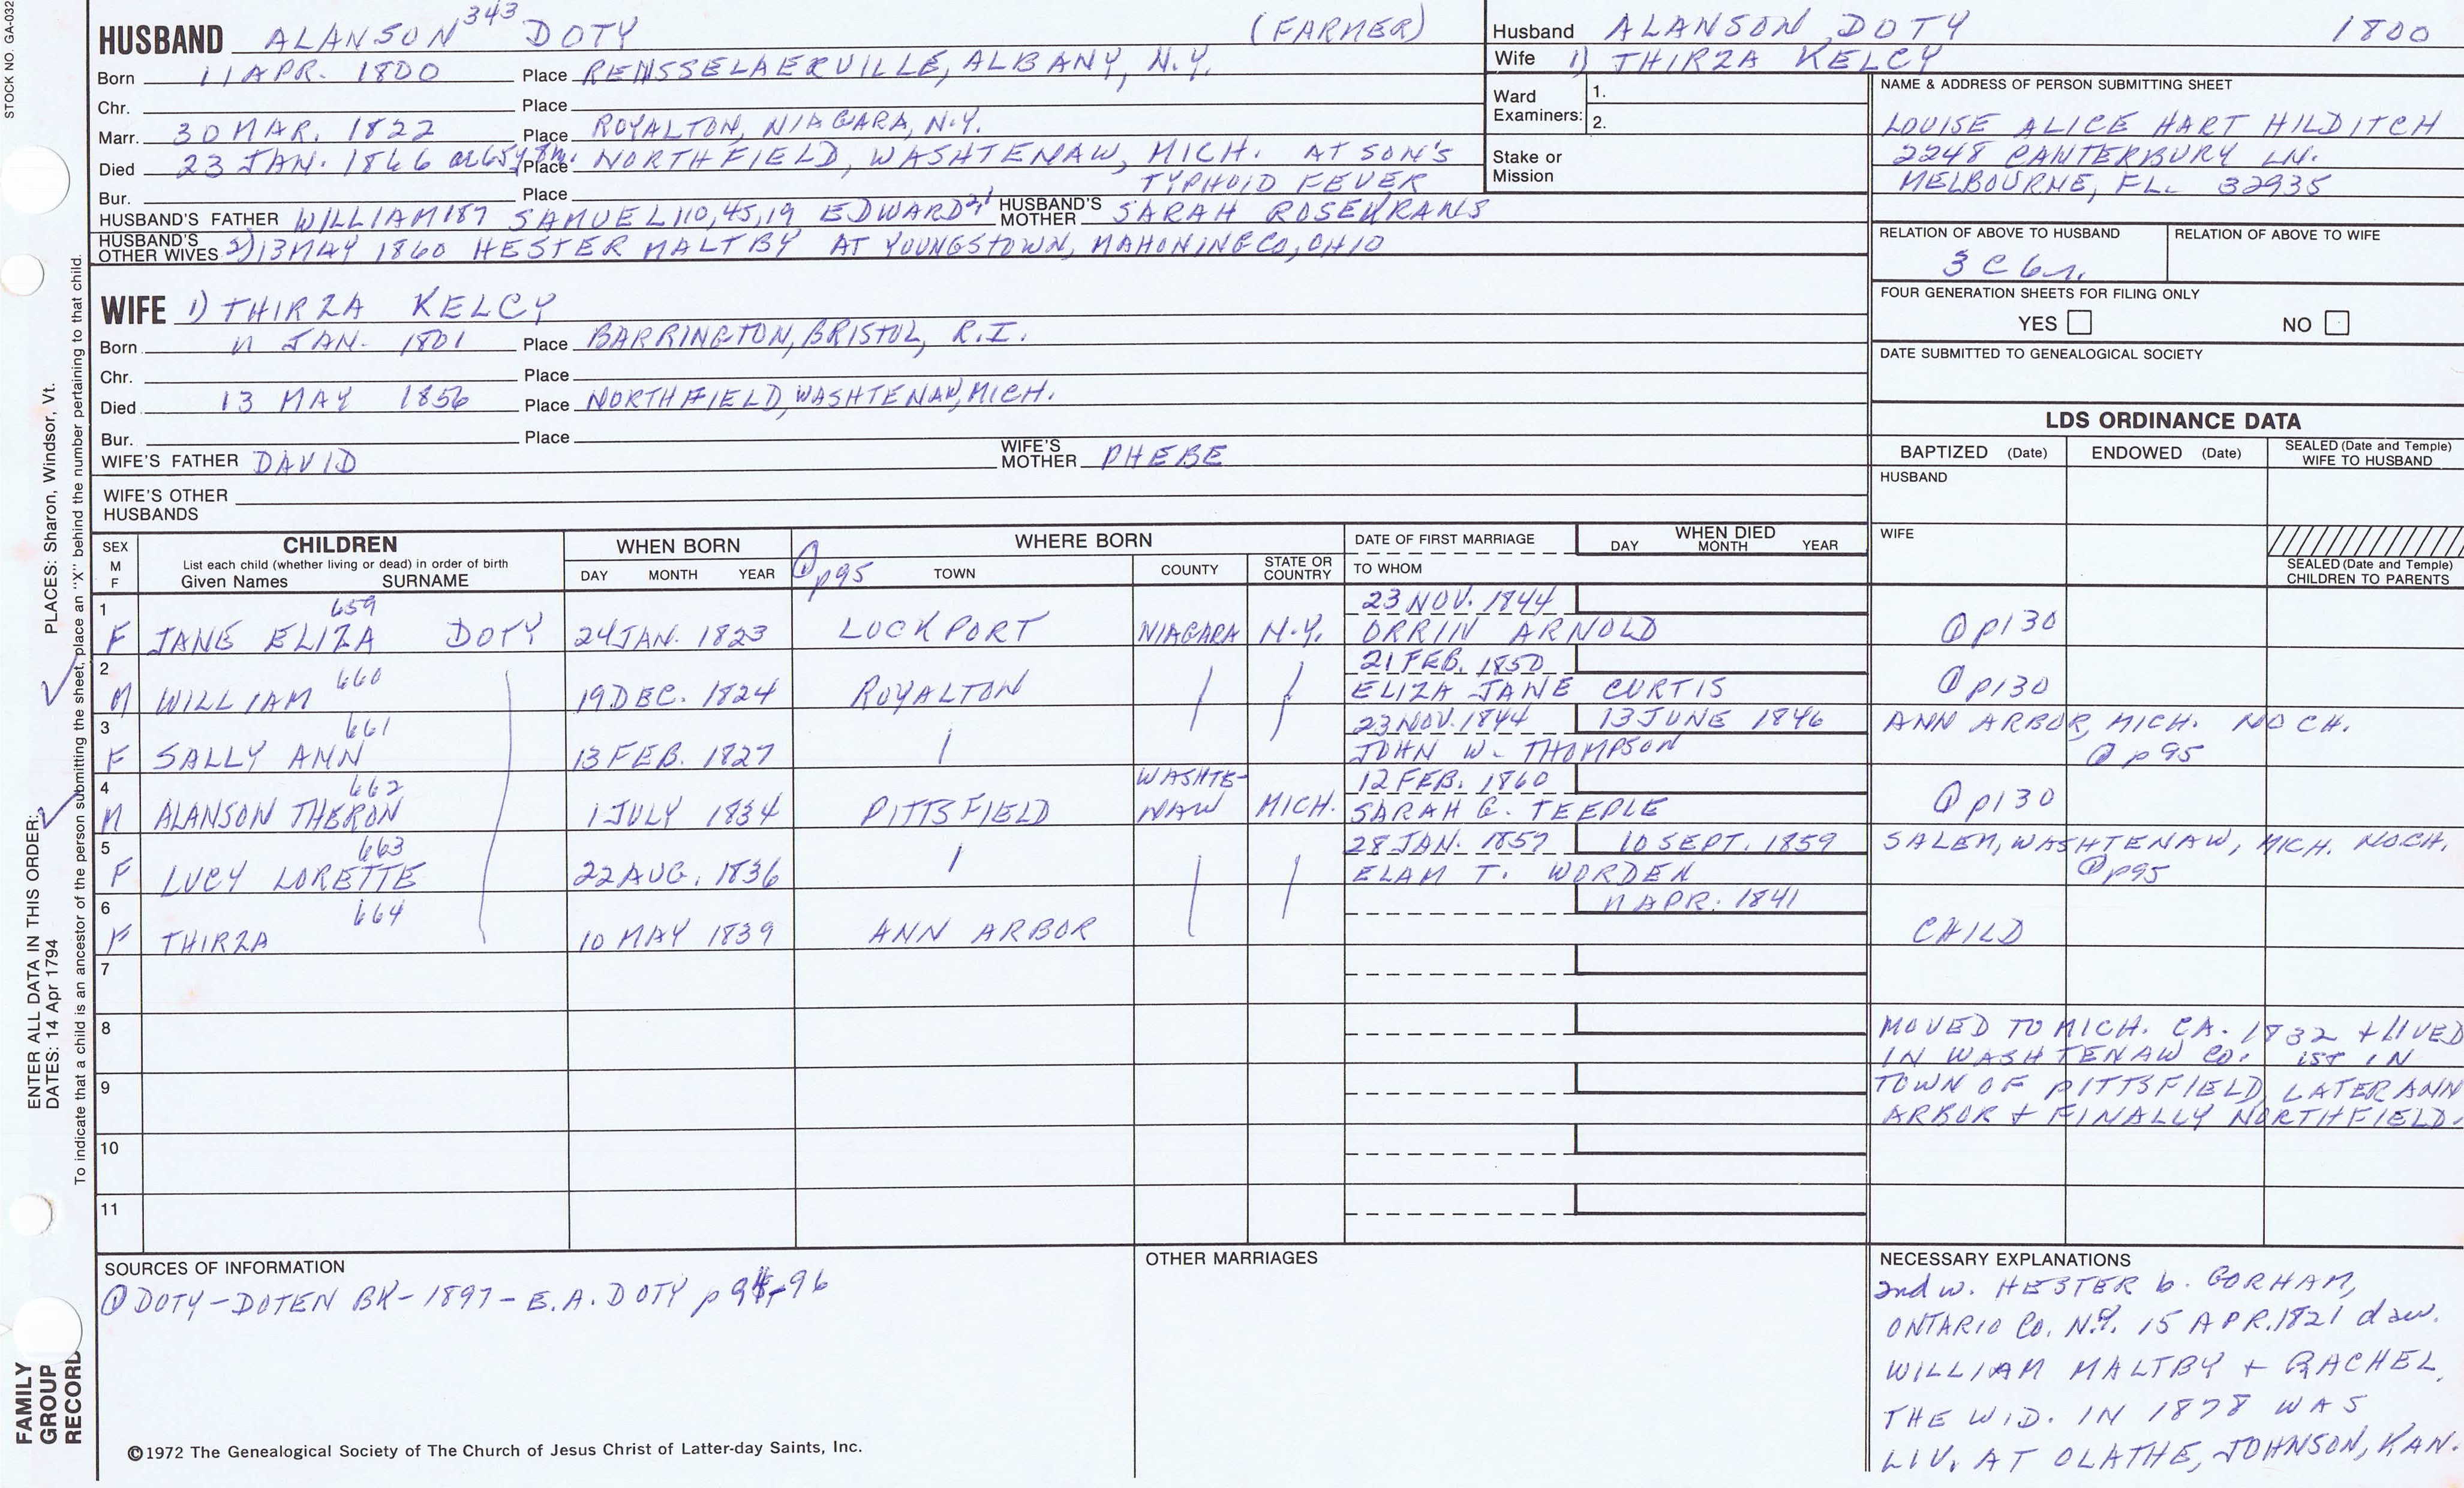 STOCK NO. GA-032
HUSBAND ALANSON 343 DOTY (FARMER)
Born 11 APR. 1800 Place RENSSELAERVILLE, ALBANY, N.Y.
Chr. Place
Marr. 30 MAR. 1822 Place ROYALTON, NIAGARA, N.Y.
Died 23 JAN. 1866 Place NORTHFIELD, WASHTENAW, MICH. AT SON'S
TYPHOID FEVER
Bur. Place
HUSBAND'S FATHER WILLIAM 187 SAMUEL 110, 45, 19 EDWARD HUSBAND'S MOTHER SARAH ROSEKRANS
HUSBAND'S OTHER WIVES 2) 13 MAY 1860 HESTER MALTBY AT YOUNGSTOWN, MAHONING CO, OHIO
WIFE 1) THIRZA KELCY
Born 11 JAN. 1801 Place BARRINGTON, BRISTOL, R.I.
Chr. Place
Died 13 MAY 1856 Place NORTHFIELD, WASHTENAW, MICH.
Bur. Place
WIFE'S FATHER DAVID WIFE'S MOTHER PHEBE
WIFE'S OTHER HUSBANDS
Husband ALANSON DOTY 1800
Wife 1) THIRZA KELCY
Ward Examiners: 1.
2.
Stake or Mission
NAME & ADDRESS OF PERSON SUBMITTING SHEET
LOUISE ALICE HART HILDITCH
2248 CANTERBURY LN.
MELBOURNE, FL. 32935
RELATION OF ABOVE TO HUSBAND RELATION OF ABOVE TO WIFE
3 C 6 r.
FOUR GENERATION SHEETS FOR FILING ONLY
YES NO
DATE SUBMITTED TO GENEALOGICAL SOCIETY
LDS ORDINANCE DATA
BAPTIZED (Date) ENDOWED (Date) SEALED (Date and Temple) WIFE TO HUSBAND
HUSBAND
WIFE
SEALED (Date and Temple) CHILDREN TO PARENTS
SEX M F
CHILDREN
List each child (whether living or dead) in order of birth
Given Names SURNAME
WHEN BORN
DAY MONTH YEAR
WHERE BORN
① p95 TOWN COUNTY STATE OR COUNTRY
DATE OF FIRST MARRIAGE
TO WHOM
WHEN DIED
DAY MONTH YEAR
1 659 23 NOV. 1844
F JANE ELIZA DOTY 24 JAN. 1823 LOCKPORT NIAGARA N.Y. ORRIN ARNOLD ① p130
2 660 21 FEB. 1850
M WILLIAM 19 DEC. 1824 ROYALTON ELIZA JANE CURTIS ① p130
3 661 23 NOV. 1844 13 JUNE 1846 ANN ARBOR, MICH. NO CH.
F SALLY ANN 13 FEB. 1827 JOHN W. THOMPSON ① p95
4 662 WASHTE- 12 FEB. 1860
M ALANSON THERON 1 JULY 1834 PITTSFIELD NAW MICH. SARAH G. TEEPLE ① p130
5 663 28 JAN. 1857 10 SEPT. 1859 SALEM, WASHTENAW, MICH. NO CH.
F LUCY LORETTE 22 AUG. 1836 ELAM T. WORDEN ① p95
6 664 11 APR. 1841
F THIRZA 10 MAY 1839 ANN ARBOR CHILD
7
8
9
10
11
MOVED TO MICH. CA. 1832 + LIVED
IN WASHTENAW CO. 1ST IN
TOWN OF PITTSFIELD, LATER ANN
ARBOR + FINALLY NORTHFIELD.
SOURCES OF INFORMATION
① DOTY-DOTEN BK-1897-E.A. DOTY p 95-96
OTHER MARRIAGES
NECESSARY EXPLANATIONS
2nd w. HESTER b. GORHAM,
ONTARIO CO. N.Y. 15 APR. 1821 dau.
WILLIAM MALTBY + RACHEL.
THE WID. IN 1878 WAS
LIV. AT OLATHE, JOHNSON, KAN.
©1972 The Genealogical Society of The Church of Jesus Christ of Latter-day Saints, Inc.
FAMILY GROUP RECORD
ENTER ALL DATA IN THIS ORDER:
DATES: 14 Apr 1794
PLACES: Sharon, Windsor, Vt.
To indicate that a child is an ancestor of the person submitting the sheet, place an "X" behind the number pertaining to that child.